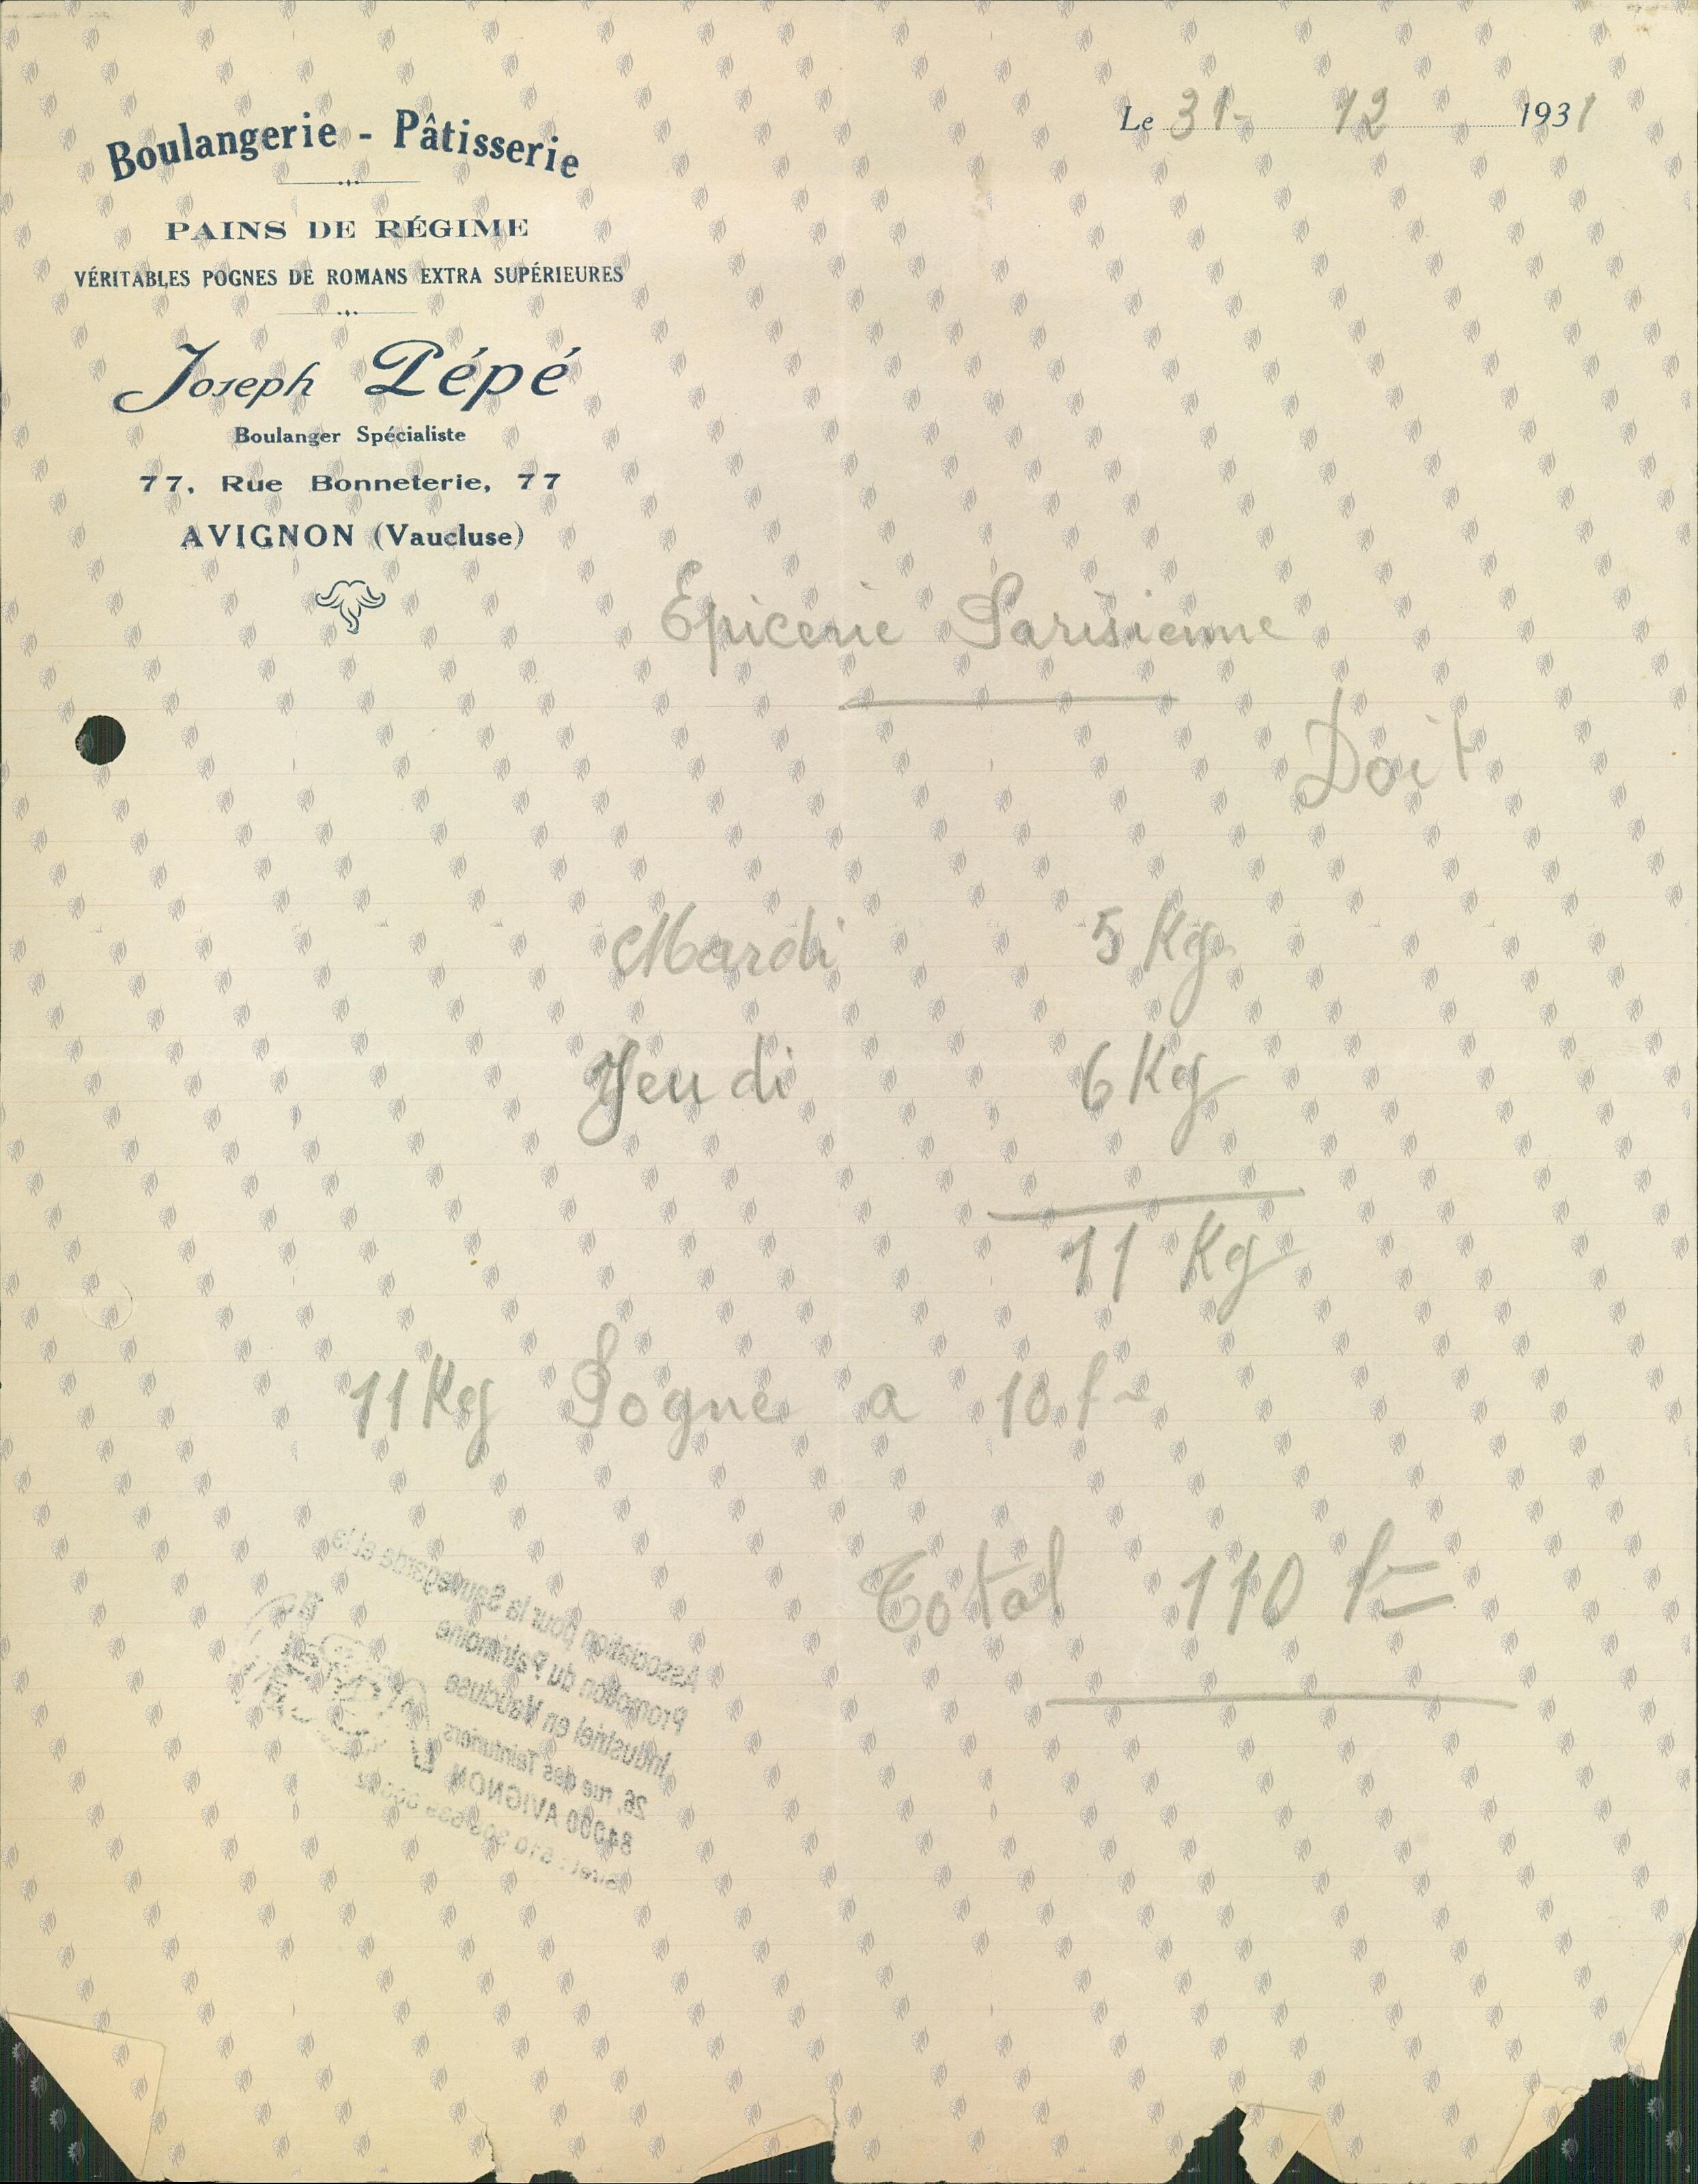 Le 31- 12 1931
Boulangerie - Pâtisserie
PAINS DE RÉGIME
VÉRITABLES POGNES DE ROMANS EXTRA SUPÉRIEURES
Joseph Pépé
Boulanger Spécialiste
77, Rue Bonneterie, 77
AVIGNON (Vaucluse)
Epicerie Parisienne
Doit
Mardi 5 Kg
Jeudi 6 Kg
11 Kg
11 Kg Pogne a 10 f
Total 110 f
Association pour la Sauvegarde et la
Promotion du Patrimoine
Industriel en Vaucluse
26, rue des Teinturiers
84000 AVIGNON
Siret : 510